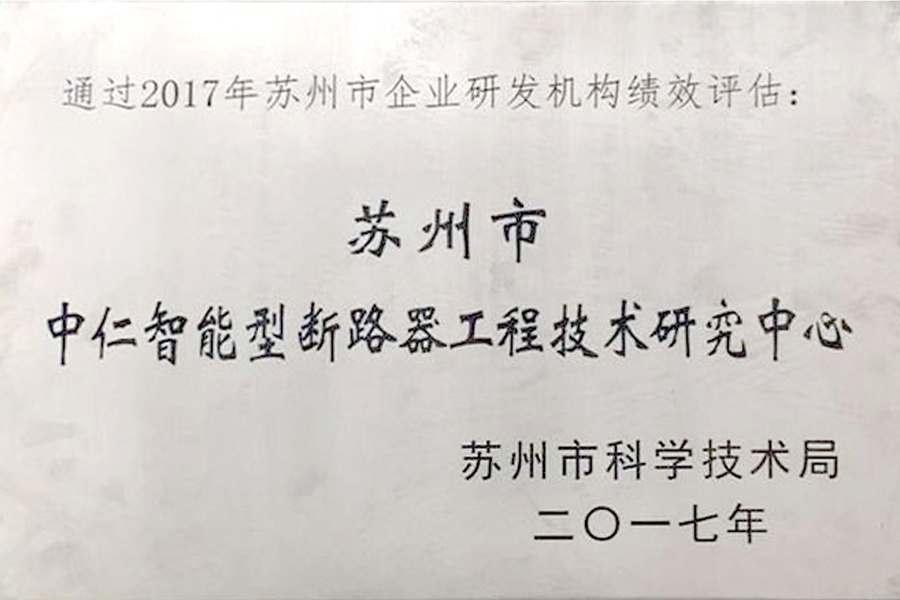 通过2017年苏州市企业研发机构绩效评估：
苏州市
中仁智能型断路器工程技术研究中心
苏州市科学技术局
二〇一七年